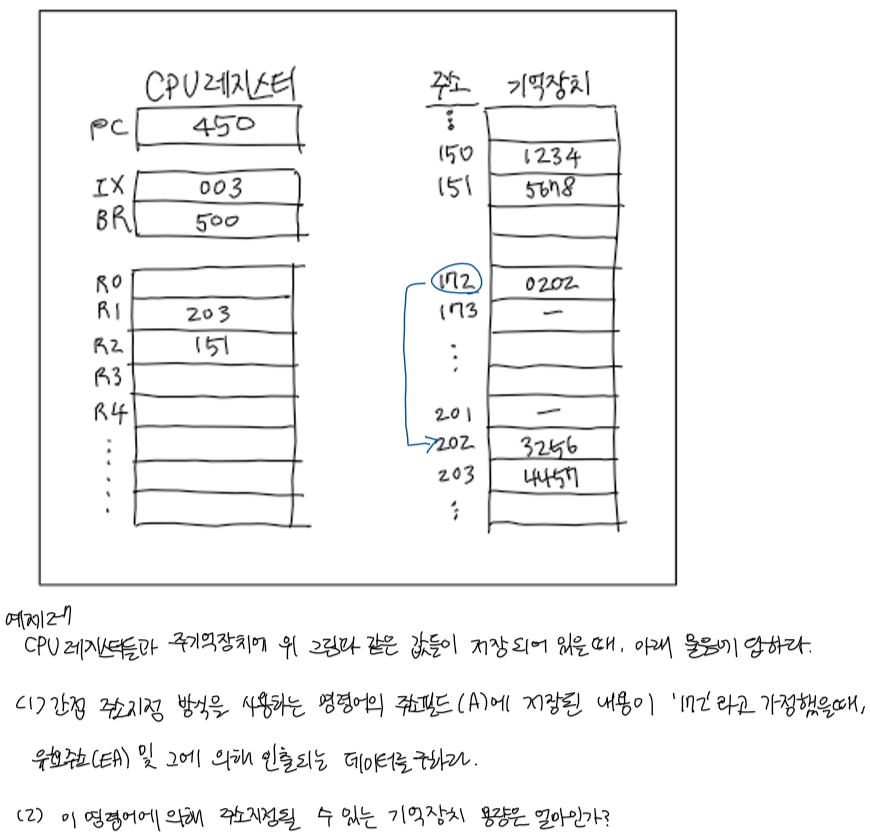 CPU 레지스터
PC 450
IX 003
BR 500
R0
R1 203
R2 151
R3
R4
주소 기억장치
150 1234
151 5678
172 0202
173 —
201 —
202 3256
203 4457
예제2-7
CPU 레지스터들과 주기억장치에 위 그림과 같은 값들이 저장되어 있을때, 아래 물음에 답하라.
(1) 간접 주소지정 방식을 사용하는 명령어의 주소필드(A)에 저장된 내용이 '172'라고 가정했을때,
유효주소(EA) 및 그에 의해 인출되는 데이터를 구하라.
(2) 이 명령어에 의해 주소지정될 수 있는 기억장치 용량은 얼마인가?